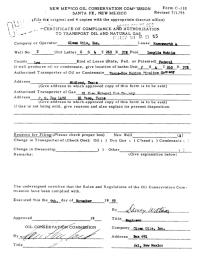 NEW MEXICO OIL CONSERVATION COMMISSION Form C-110
SANTA FE, NEW MEXICO Revised 7/1/55
(File the original and 4 copies with the appropriate district office)
CERTIFICATE OF COMPLIANCE AND AUTHORIZATION
TO TRANSPORT OIL AND NATURAL GAS
Company or Operator Olsen Oils, Inc. Lease
Well No. 2 Unit Letter S T R Pool Langlie Mattix
County Lea Kind of Lease (State, Fed. or Patented) Federal
If well produces oil or condensate, give location of tanks: Unit S T R
Authorized Transporter of Oil or Condensate
Address Midland, Texas
(Give address to which approved copy of this form is to be sent)
Authorized Transporter of Gas
Address El Paso, Texas
(Give address to which approved copy of this form is to be sent)
If Gas is not being sold, give reasons and also explain its present disposition:
Reasons for Filing: (Please check proper box) New Well ( )
Change in Transporter of (Check One): Oil ( ) Dry Gas ( ) C'head ( ) Condensate ( )
Change in Ownership ( ) Other ( )
Remarks: (Give explanation below)
The undersigned certifies that the Rules and Regulations of the Oil Conservation Commission have been complied with.
Executed this the day of November 19
By
Approved 19 Title Engineer
OIL CONSERVATION COMMISSION Company Olsen Oils, Inc.
By Address Box 691
Title Jal, New Mexico